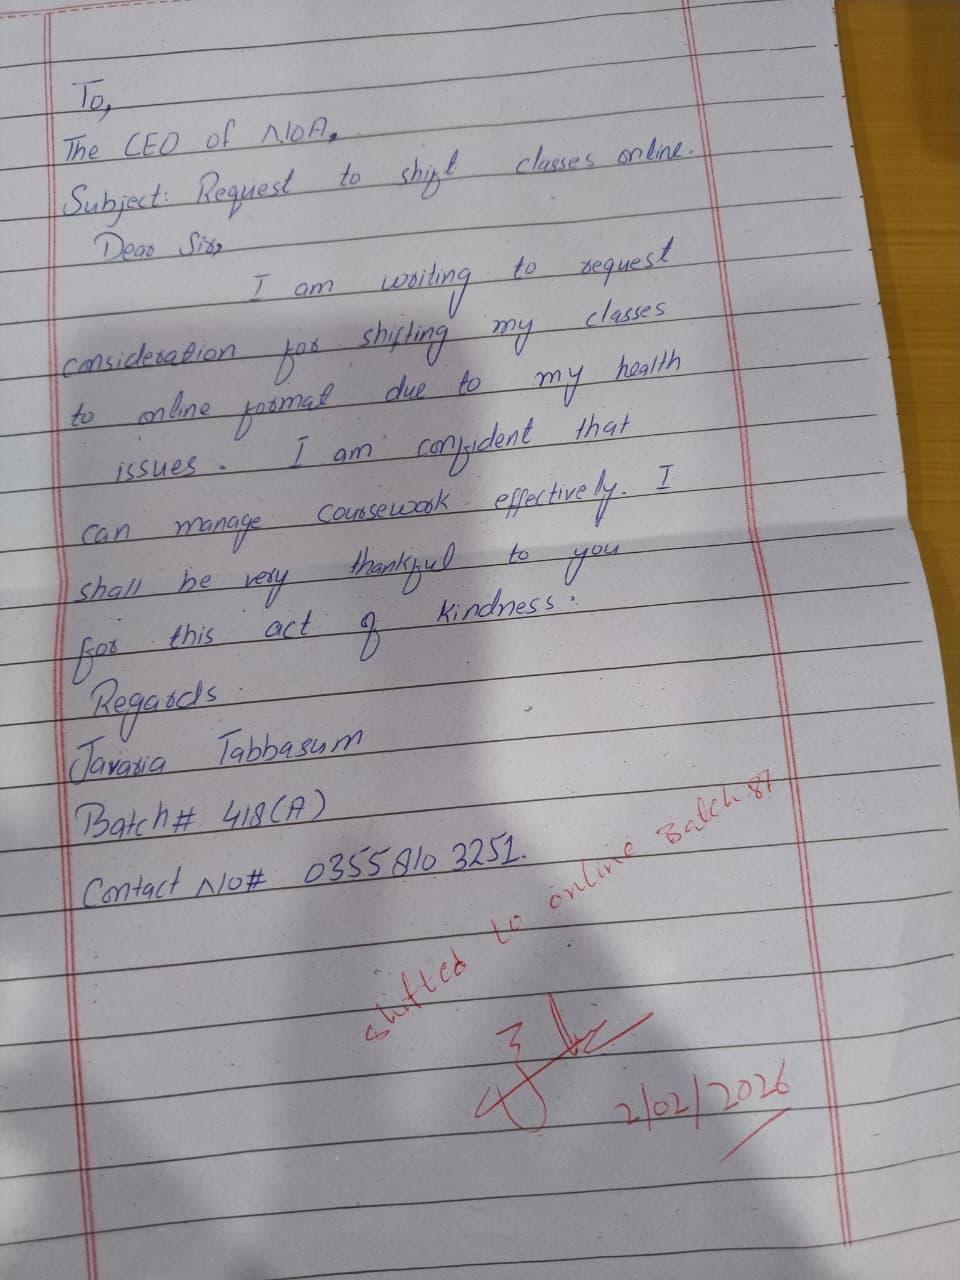 To,
The CEO of NOA,
Subject: Request to shift classes online.
Dear Sir,
I am writing to request
consideration for shifting my classes
to online format due to my health
issues. I am confident that
can manage coursework effectively. I
shall be very thankful to you
for this act of kindness.
Regards
Javaria Tabbasum
Batch# 418(A)
Contact No# 0355 810 3251.
shifted to online Batch 87
2/02/2026